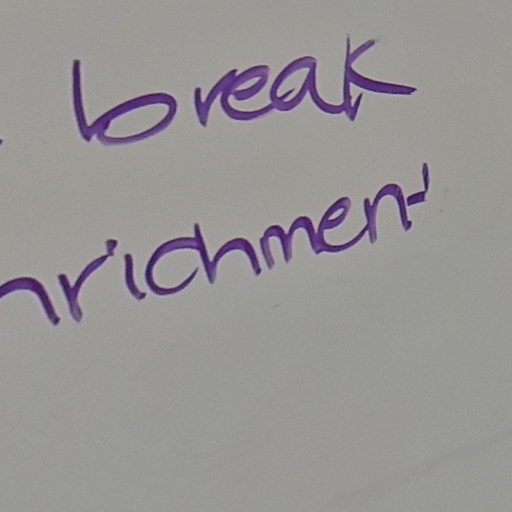 break
nrichment